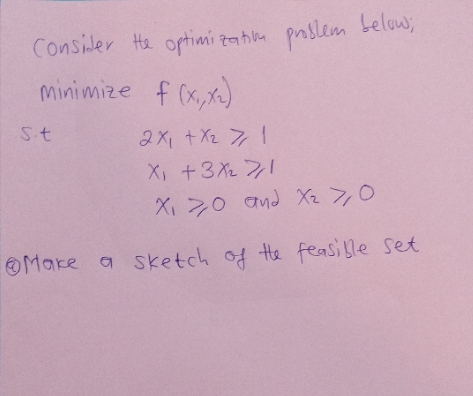 Consider the optimization problem below;
minimize f(x₁,x₂)
s.t 2x₁ + x₂ ⩾ 1
x₁ + 3x₂ ⩾ 1
x₁ ⩾ 0 and x₂ ⩾ 0
ⓐ Make a sketch of the feasible set